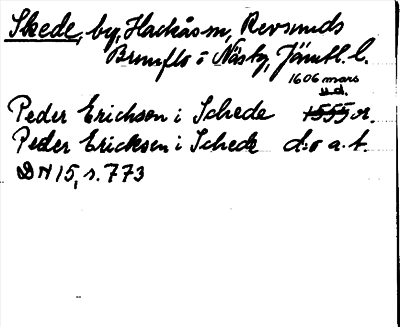 Skede, by, Hackås sn, Revsunds
Brunflo o Näsby, Jämtl. l.
1606 mars
u.d.
Peder Erichson i Schede 1555 or.
Peder Erickson i Schede d:o a.t.
DN 15, s. 773